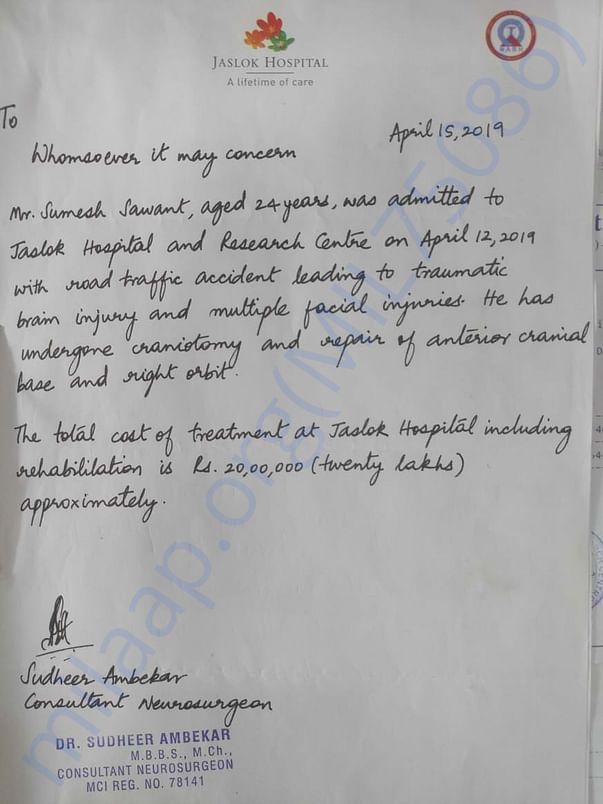 JASLOK HOSPITAL
A lifetime of care
To
April 15, 2019
Whomsoever it may concern
Mr. Sumesh Sawant, aged 24 years, was admitted to
Jaslok Hospital and Research Centre on April 12, 2019
with road traffic accident leading to traumatic
brain injury and multiple facial injuries. He has
undergone craniotomy and repair of anterior cranial
base and right orbit.
The total cost of treatment at Jaslok Hospital including
rehabililation is Rs. 20,00,000 (twenty lakhs)
approximately.
Sudheer Ambekar
Consultant Neurosurgeon
DR. SUDHEER AMBEKAR
M.B.B.S., M.Ch.,
CONSULTANT NEUROSURGEON
MCI REG. NO. 78141
milaap.org(MILZ75086)